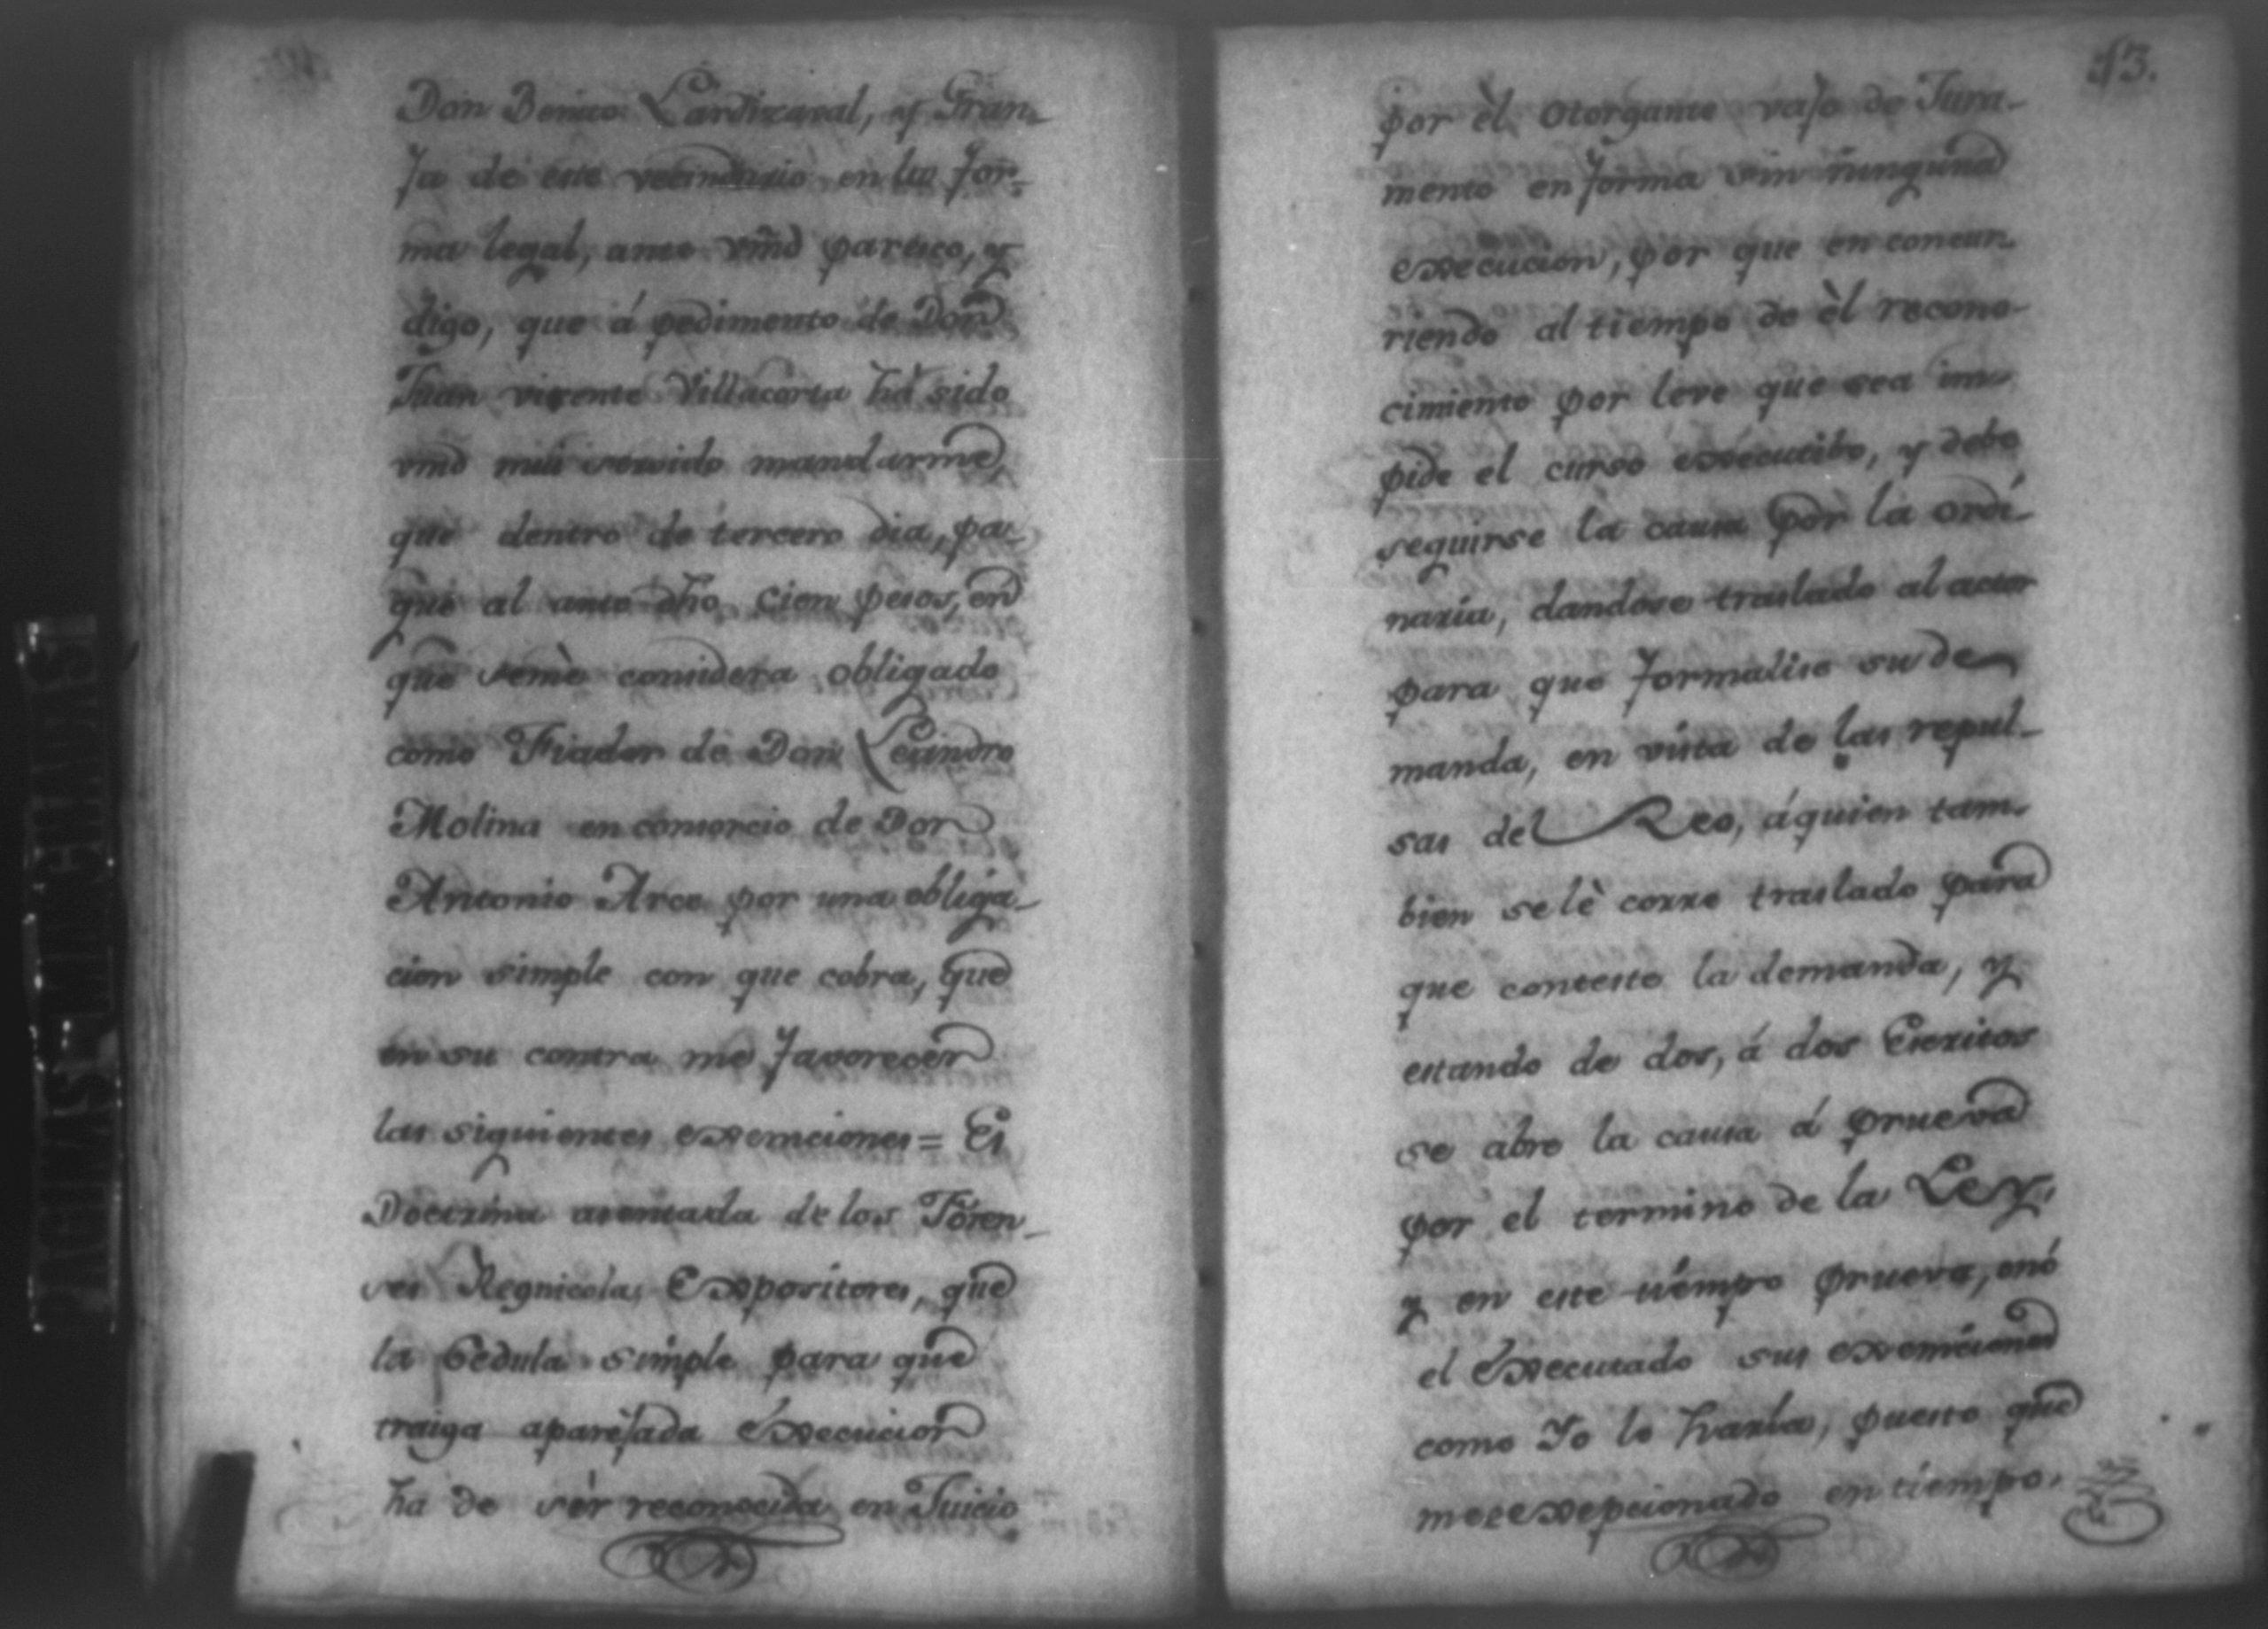 Don Benito Lardizaval, y Fran-
ja de este vecindario en la for-
ma legal, ante vmd paresco, y
digo, que á pedimento de Don
Juan vicente Villacorta ha sido
vmd mui servido mandarme,
que dentro de tercero dia, pa-
gue al ante dho cien pesos, en
que semè considera obligado
como Fiador de Don Leandro
Molina en consorcio de Don
Antonio Arce por una obliga-
cion simple con que cobra, que
en su contra me favorecen
las siguientes exemciones = Es
Doctrina asentada de los Foren-
ses Regnicolas Expositores, que
la Cedula simple para que
traiga aparejada Execucion
ha de sèr reconocida en Juicio
43.
por èl Otorgante vajo de Jura-
mento en forma sin ninguna
execucion, por que en concur-
riendo al tiempo de èl recono-
cimiento por leve que sea im-
pide el curso executibo, y debe
seguirse la causa por la ordi-
naria, dandose traslado al actor
para que formalise su de-
manda, en vista de las repul-
sas del Reo, áquien tam-
bien se lè corre traslado para
que conteste la demanda, y
estando de dos, á dos Escritos
se abre la causa á prueva
por el termino de la Ley,
y en este tiempo prueva, ónó
el Executado sus exemciones
como Yo lo haria, puesto que
me exepcionado en tiempo,